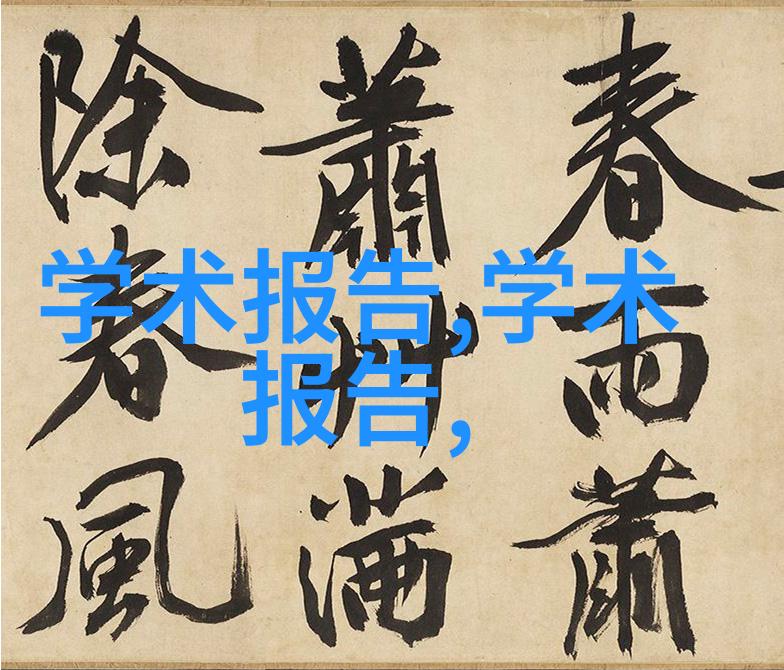 春雨蕭
蕭艸滿
除春風
学术报告,学术
报告,